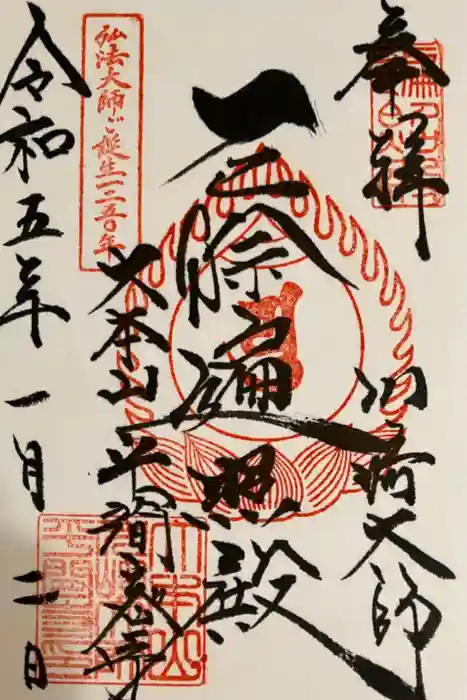 奉拝
川崎大師
遍照殿
大本山平間寺
弘法大師ご誕生一二五〇年
令和五年一月二日